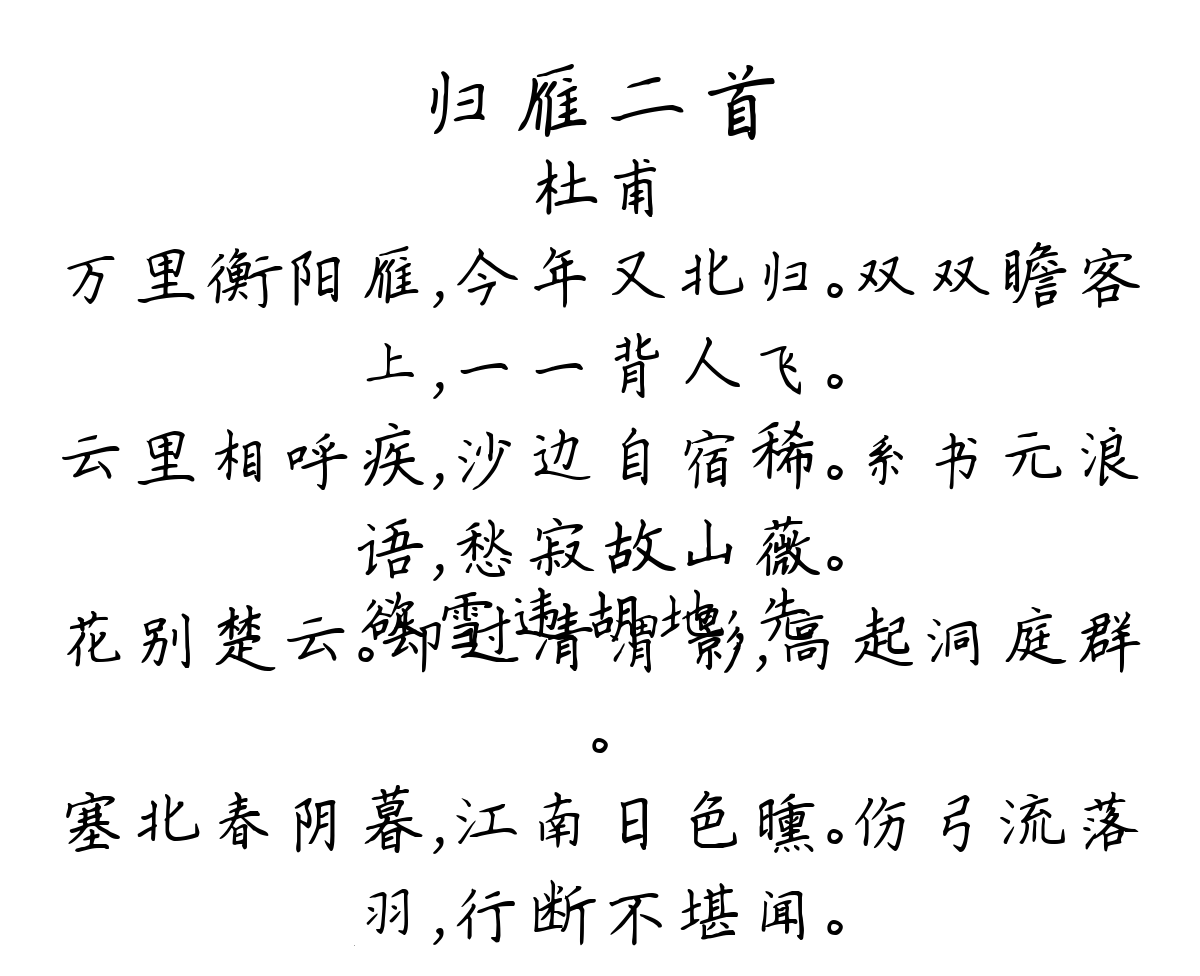 归雁二首
杜甫
万里衡阳雁,今年又北归。双双瞻客
上,一一背人飞。
云里相呼疾,沙边自宿稀。系书元浪
语,愁寂故山薇。
欲雪违胡地,先
花别楚云。却过清渭影,高起洞庭群
。
塞北春阴暮,江南日色曛。伤弓流落
羽,行断不堪闻。